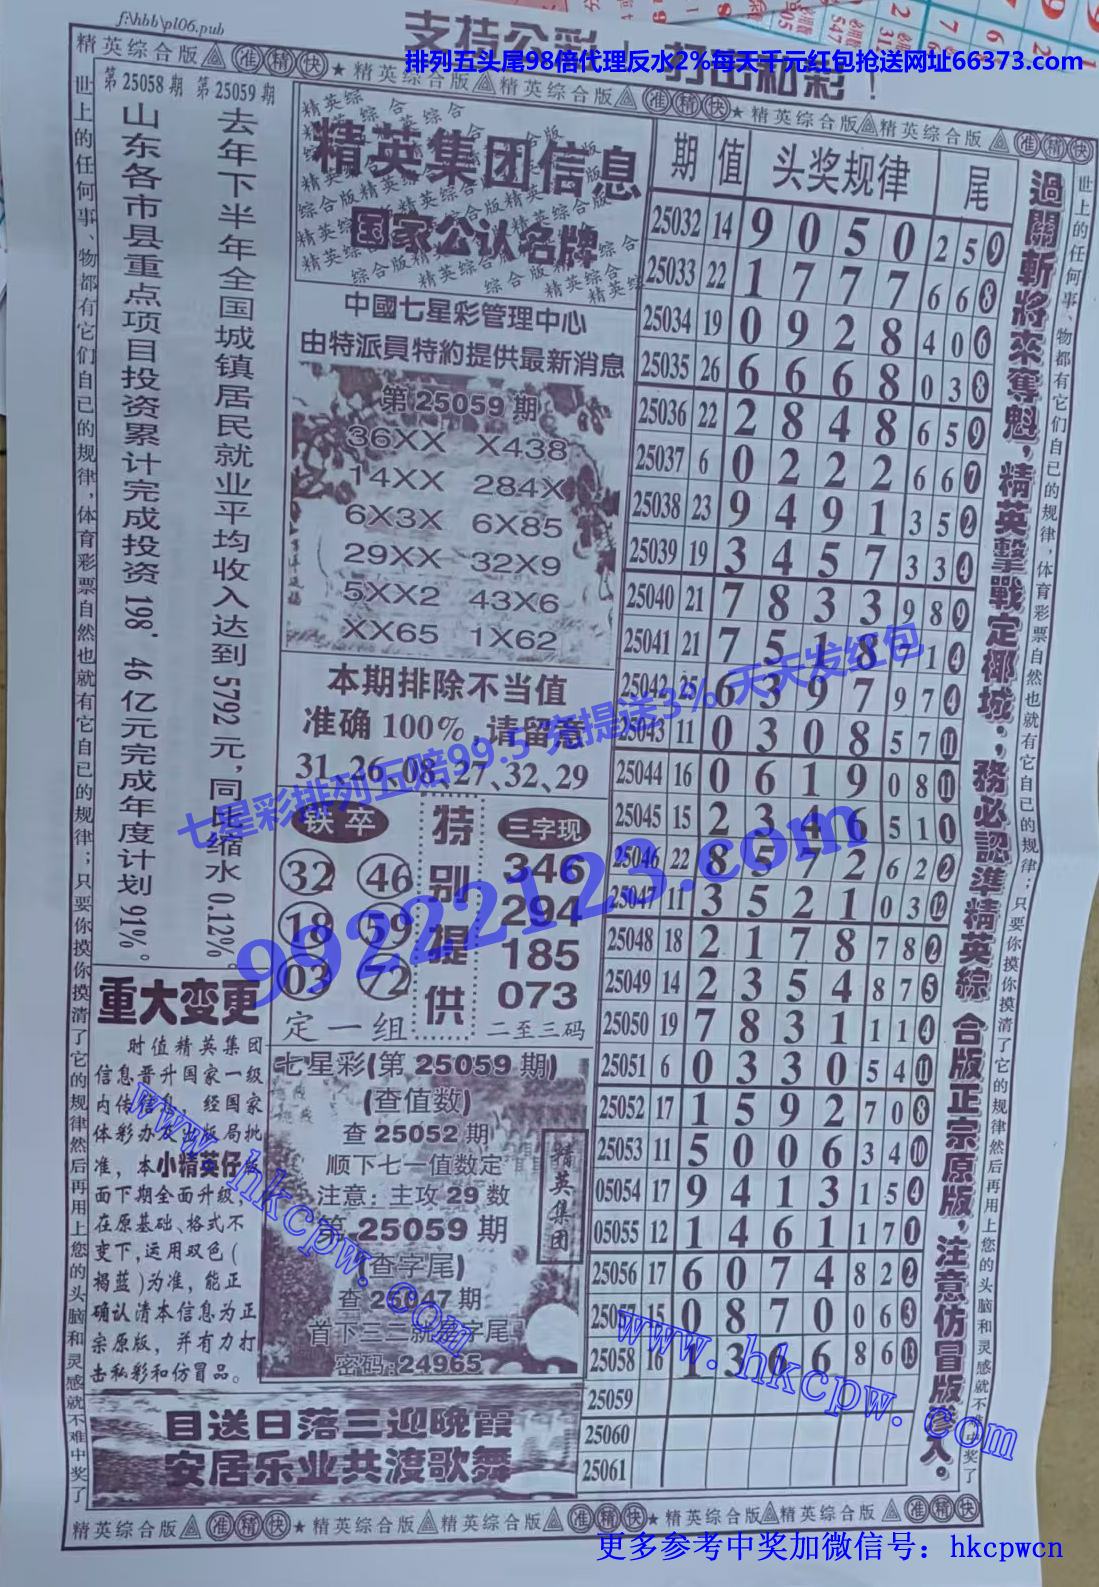 f:\hbb\pl06.pub
支持公彩
打击私彩！
排列五头尾98倍代理反水2%每天千元红包抢送网址66373.com
精英综合版 准精快 ★ 精英综合版 精英综合版 准精快 ★ 精英综合版 精英综合版 准精快
世上的任何事、物都有它们自己的规律，体育彩票自然也就有它自己的规律；只要你摸你摸清了它的规律然后再用上您的头脑和灵感就不难中奖了
第25058期 第25059期
去年下半年全国城镇居民就业平均收入达到5792元，同比缩水0.12%。
山东各市县重点项目投资累计完成投资198.46亿元完成年度计划91%。
精英集团信息
国家公认名牌
中國七星彩管理中心
由特派員特約提供最新消息
第25059期
36XX X438
14XX 284X
6X3X 6X85
29XX 32X9
5XX2 43X6
XX65 1X62
本期排除不当值
准确100%，请留意
31、26、08、27、32、29
铁卒
32 46
18 59
03 72
定一组
特别提供
三字现
346
294
185
073
二至三码
重大变更
时值精英集团
信息晋升国家一级
内传信息，经国家
体彩办及出版局批
准，本小精英仔版
面下期全面升级，
在原基础、格式不
变下，运用双色（
褐蓝）为准，能正
确认清本信息为正
宗原版，并有力打
击私彩和仿冒品。
七星彩(第25059期)
(查值数)
查25052期
顺下七一值数定
注意：主攻29数
第25059期
(查字尾)
查25047期
首下三二就是字尾
密码:24965
精英集团
目送日落三迎晚霞
安居乐业共渡歌舞
期 值 头奖规律 尾
25032 14 9 0 5 0 2 5 9
25033 22 1 7 7 7 6 6 8
25034 19 0 9 2 8 4 0 6
25035 26 6 6 6 8 0 3 8
25036 22 2 8 4 8 6 5 9
25037 6 0 2 2 2 6 6 7
25038 23 9 4 9 1 3 5 2
25039 19 3 4 5 7 3 3 4
25040 21 7 8 3 3 9 8 9
25041 21 7 5 1 8 7 1 4
25042 25 6 3 9 7 9 7 4
25043 11 0 3 0 8 5 7 11
25044 16 0 6 1 9 0 8 11
25045 15 2 3 4 6 5 1 1
25046 22 8 5 7 2 6 2 2
25047 11 3 5 2 1 0 3 12
25048 18 2 1 7 8 7 8 2
25049 14 2 3 5 4 8 7 5
25050 19 7 8 3 1 1 1 4
25051 6 0 3 3 0 5 4 11
25052 17 1 5 9 2 7 0 8
25053 11 5 0 0 6 3 4 10
05054 17 9 4 1 3 1 5 4
05055 12 1 4 6 1 1 7 1
25056 17 6 0 7 4 8 2 2
25057 15 0 8 7 0 0 6 3
25058 16 1 3 6 6 8 6 13
25059
25060
25061
過關斬將來奪魁，精英擊戰定椰城，務必認準精英綜合版正宗原版，注意仿冒版滲入。
世上的任何事、物都有它们自己的规律，体育彩票自然也就有它自己的规律；只要你摸你摸清了它的规律然后再用上您的头脑和灵感就不难中奖了
七星彩排列五赔99.5 充提送3% 天天发红包
99222123.com
www.hkcpw.com
www.hkcpw.com
精英综合版 准精快 ★ 精英综合版 精英综合版 准精快 ★ 精英综合版 精英综合版 准精快
更多参考中奖加微信号：hkcpwcn